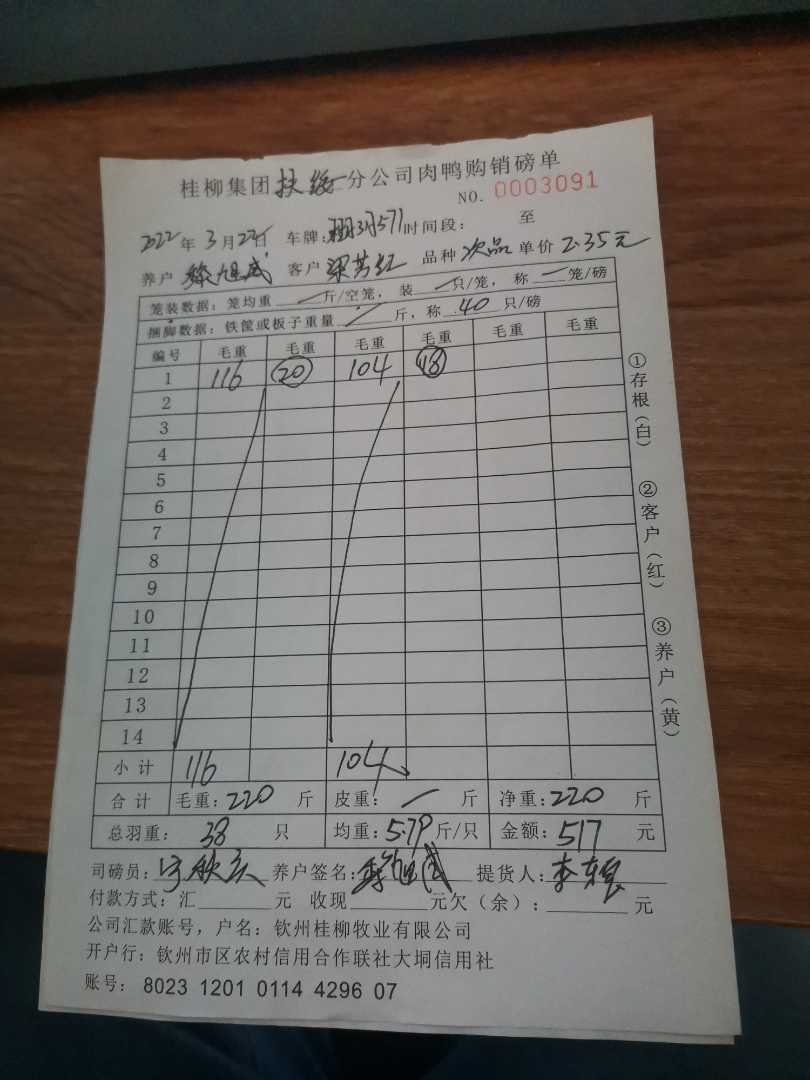 桂柳集团扶绥分公司肉鸭购销磅单
NO. 0003091
2022年3月22日 车牌: 571 时间段: 至
养户 客户 梁芳红 品种 次品 单价 2.35元
笼装数据：笼均重 — 斤/空笼，装 — 只/笼，称 — 笼/磅
捆脚数据：铁筐或板子重量 — 斤，称 40 只/磅
编号 毛重 毛重 毛重 毛重 毛重 毛重
1 116 20 104 18
2
3
4
5
6
7
8
9
10
11
12
13
14
小计 116 104
合计 毛重: 220 斤 皮重: — 斤 净重: 220 斤
总羽重: 38 只 均重: 5.79 斤/只 金额: 517 元
司磅员: 养户签名: 提货人: 李
付款方式: 汇 元 收现 元欠（余）: 元
公司汇款账号，户名：钦州桂柳牧业有限公司
开户行：钦州市区农村信用合作联社大垌信用社
账号： 8023 1201 0114 4296 07
①存根（白）
②客户（红）
③养户（黄）